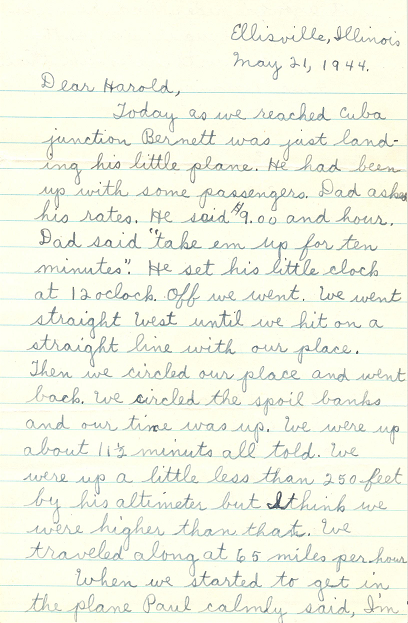 Ellisville, Illinois
May 21, 1944.
Dear Harold,
Today as we reached Cuba
junction Bernett was just land-
ing his little plane. He had been
up with some passengers. Dad asked
his rates. He said $9.00 and hour.
Dad said "take em up for ten
minutes". He set his little clock
at 12 oclock. Off we went. We went
straight West until we hit on a
straight line with our place.
Then we circled our place and went
back. We circled the spoil banks
and our time was up. We were up
about 11½ minuts all told. We
were up a little less than 250 feet
by his altimeter but I think we
were higher than that. We
traveled along at 65 miles per hour
When we started to get in
the plane Paul calmly said, I'm